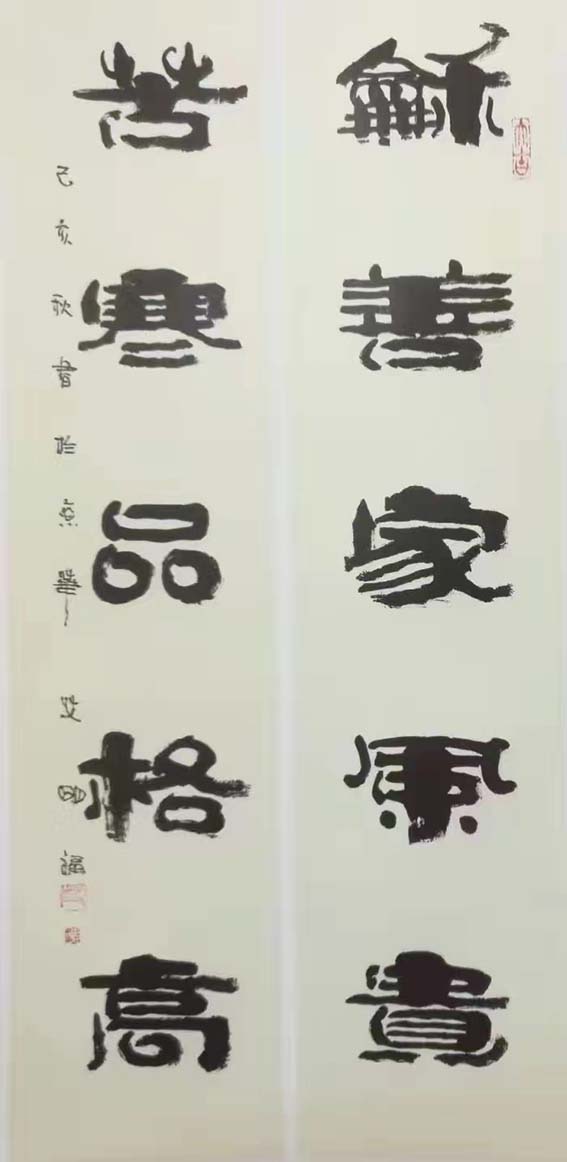 大吉
龢善家風貴
苦寒品格高
己亥秋書於京華 明福